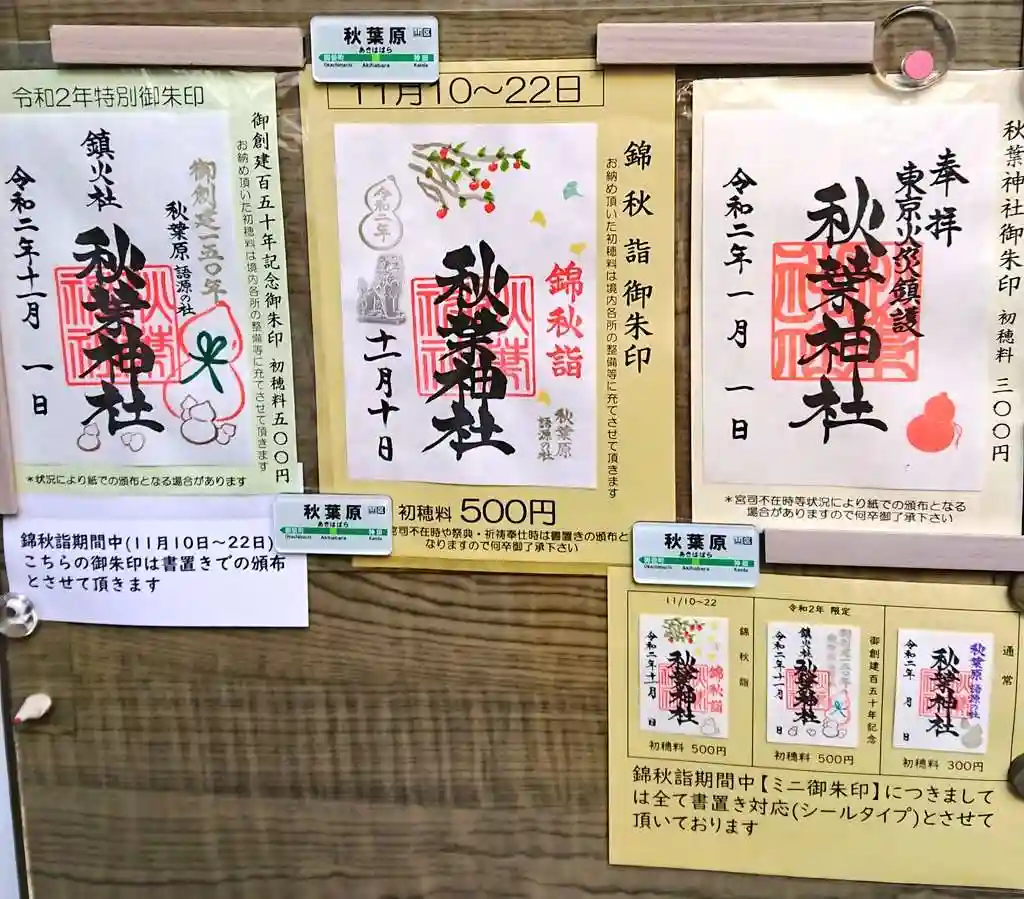 秋葉原 山区
あきはばら
御徒町 神田
Okachimachi Akihabara Kanda
令和2年特別御朱印
御創建百五十年記念御朱印 初穂料五〇〇円
お納め頂いた初穂料は境内各所の整備等に充てさせて頂きます
御創建一五〇年
秋葉原 語源の社
鎮火社
秋葉神社
令和二年十一月 一日
*状況により紙での頒布となる場合があります
錦秋詣期間中(11月10日～22日)
こちらの御朱印は書置きでの頒布
とさせて頂きます
11月10～22日
錦秋詣御朱印
お納め頂いた初穂料は境内各所の整備等に充てさせて頂きます
錦秋詣
秋葉原
語源の社
秋葉神社
令和二年
十一月十日
初穂料 500円
宮司不在時や祭典・祈祷奉仕時は書置きの頒布と
なりますので何卒御了承下さい
秋葉原
あきはばら
御徒町 神田
Okachimachi Akihabara Kanda
秋葉神社御朱印 初穂料 三〇〇円
奉拝
東京火災鎮護
秋葉神社
令和二年 一月 一日
*宮司不在時等状況により紙での頒布となる
場合がありますので何卒御了承下さい
秋葉原 山区
あきはばら
御徒町 神田
Okachimachi Akihabara Kanda
11/10～22
錦秋詣
錦秋詣
秋葉神社
令和二年十一月 日
初穂料 500円
令和2年 限定
御創建百五十年記念
鎮火社
秋葉神社
令和二年十一月 日
初穂料 500円
通常
秋葉原 語源の社
秋葉神社
令和二年 月 日
初穂料 300円
錦秋詣期間中【ミニ御朱印】につきまして
は全て書置き対応(シールタイプ)とさせて
頂いております